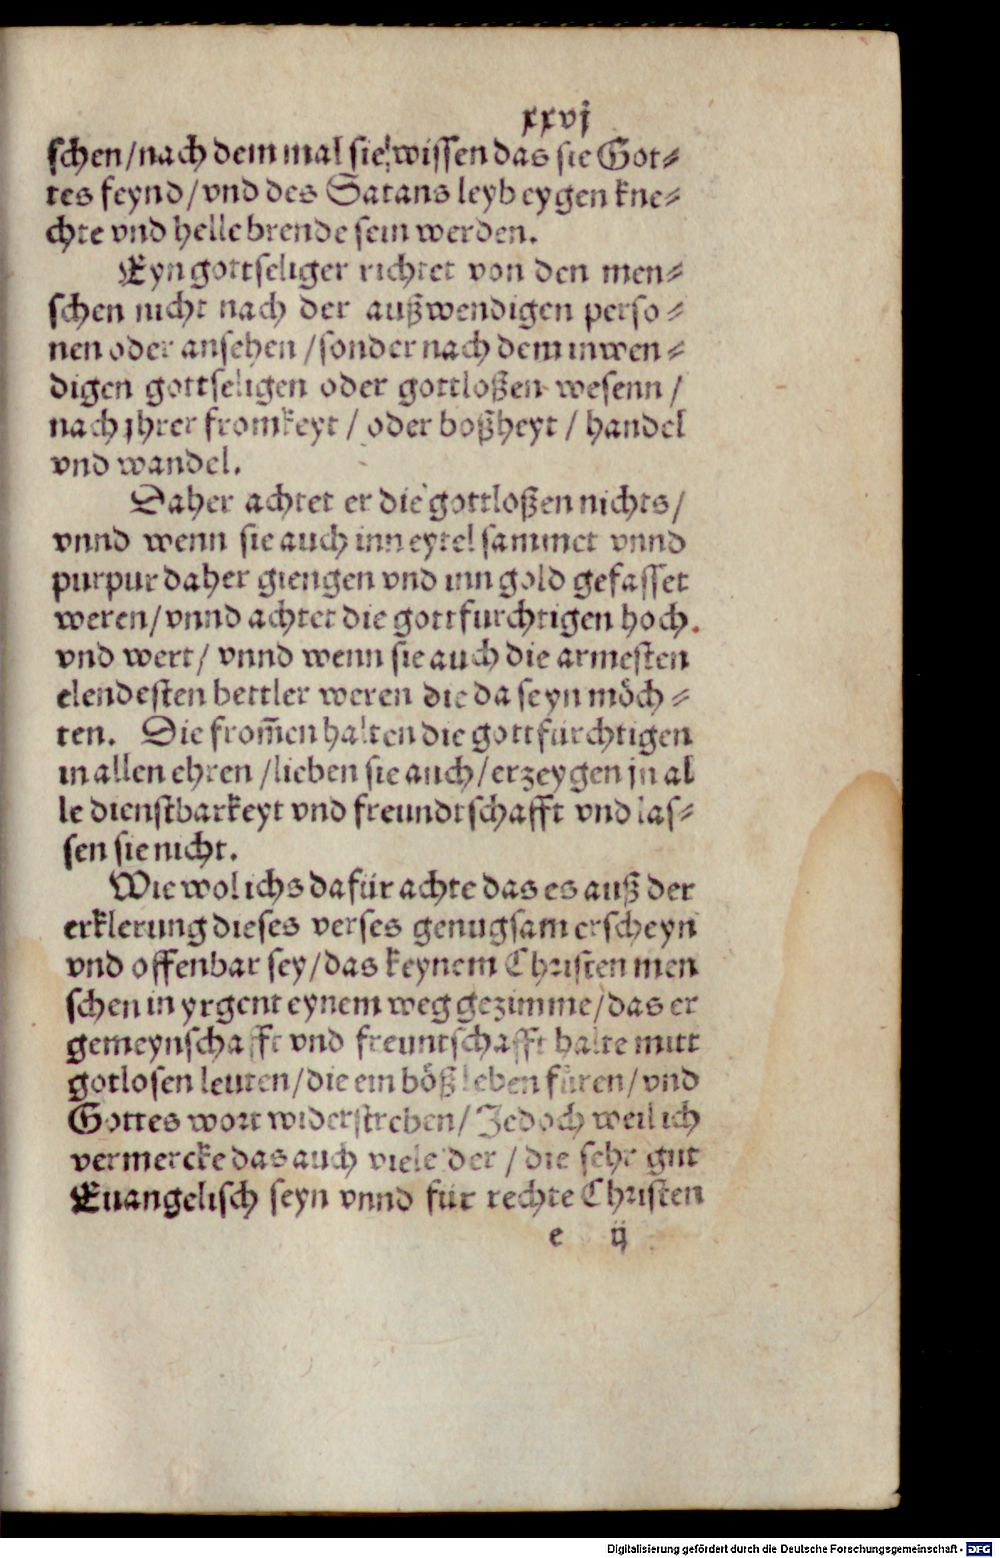 xxvj
schen/nach dem mal sie wissen das sie Got⸗
tes feynd/vnd des Satans leyb eygen kne⸗
chte vnd helle brende sein werden.
Eyn gottseliger richtet von den men⸗
schen nicht nach der außwendigen perso⸗
nen oder ansehen /sonder nach dem inwen⸗
digen gottseligen oder gottloßen wesenn /
nach jhrer fromkeyt / oder boßheyt / handel
vnd wandel.
Daher achtet er die gottloßen nichts/
vnnd wenn sie auch inn eytel sammet vnnd
purpur daher giengen vnd inn gold gefasset
weren/vnnd achtet die gottfurchtigen hoch.
vnd wert/ vnnd wenn sie auch die armesten
elendesten bettler weren die da seyn möch⸗
ten. Die from̃en halten die gottfurchtigen
in allen ehren /lieben sie auch/erzeygen jn al
le dienstbarkeyt vnd freundtschafft vnd las⸗
sen sie nicht.
Wiewol ichs dafür achte das es auß der
erklerung dieses verses genugsam erscheyn
vnd offenbar sey/das keynem Christen men
schen in yrgent eynem weg gezimme/das er
gemeynschafft vnd freuntschafft halte mitt
gotlosen leuten/die ein böß leben füren/vnd
Gottes wort widerstreben/ Jedoch weil ich
vermercke das auch viele der / die sehr gut
Euangelisch seyn vnnd für rechte Christen
e ij
Digitalisierung gefördert durch die Deutsche Forschungsgemeinschaft - DFG